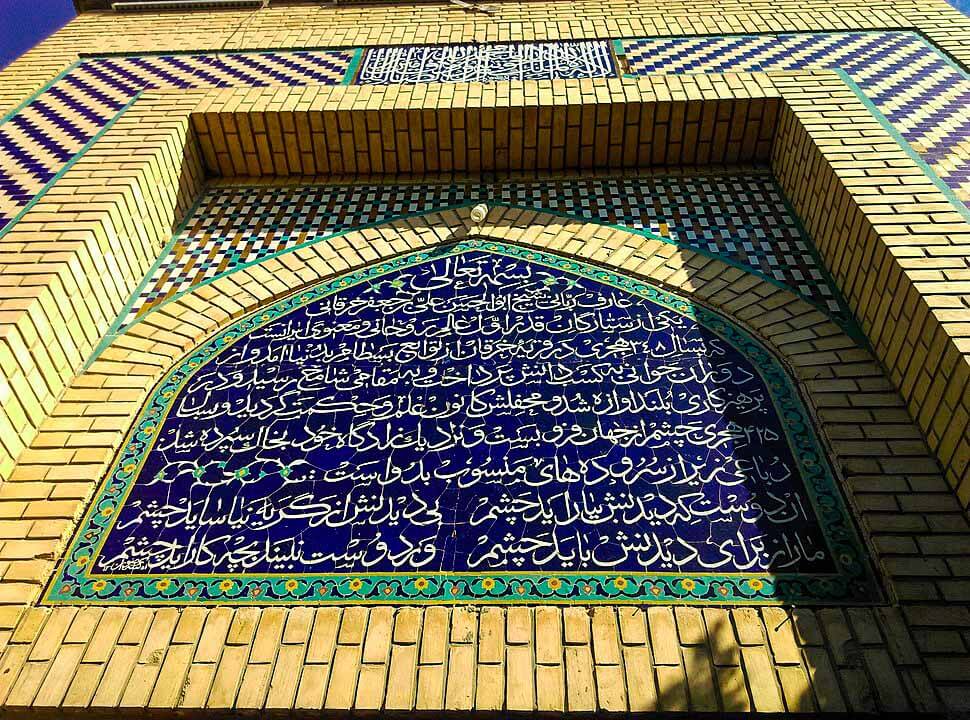 بسمه تعالی
عارف ربانی شیخ ابوالحسن علی بن جعفر خرقانی
یکی از ستارگان قدر اول عالم روحانی و معنوی ایرانست
که بسال ۳۴۸ هجری در قریه خرقان از نواحی بسطام
دوران جوانی به کسب دانش پرداخت و به مقامی شامخ رسید و در
پرهیزکاری بلند آوازه شد و محفلش کانون علم و حکمت گردید و
۴۲۵ هجری چشم از جهان فرو بست و نزدیک زادگاه خود بخاک سپرده شد.
رباعی زیر از سروده های منسوب بدو است
آن دوست که دیدنش بیاراید چشم بی دیدنش از گریه نیاساید چشم
ما را ز برای دیدنش باید چشم ور دوست نبیند بچه کار آید چشم